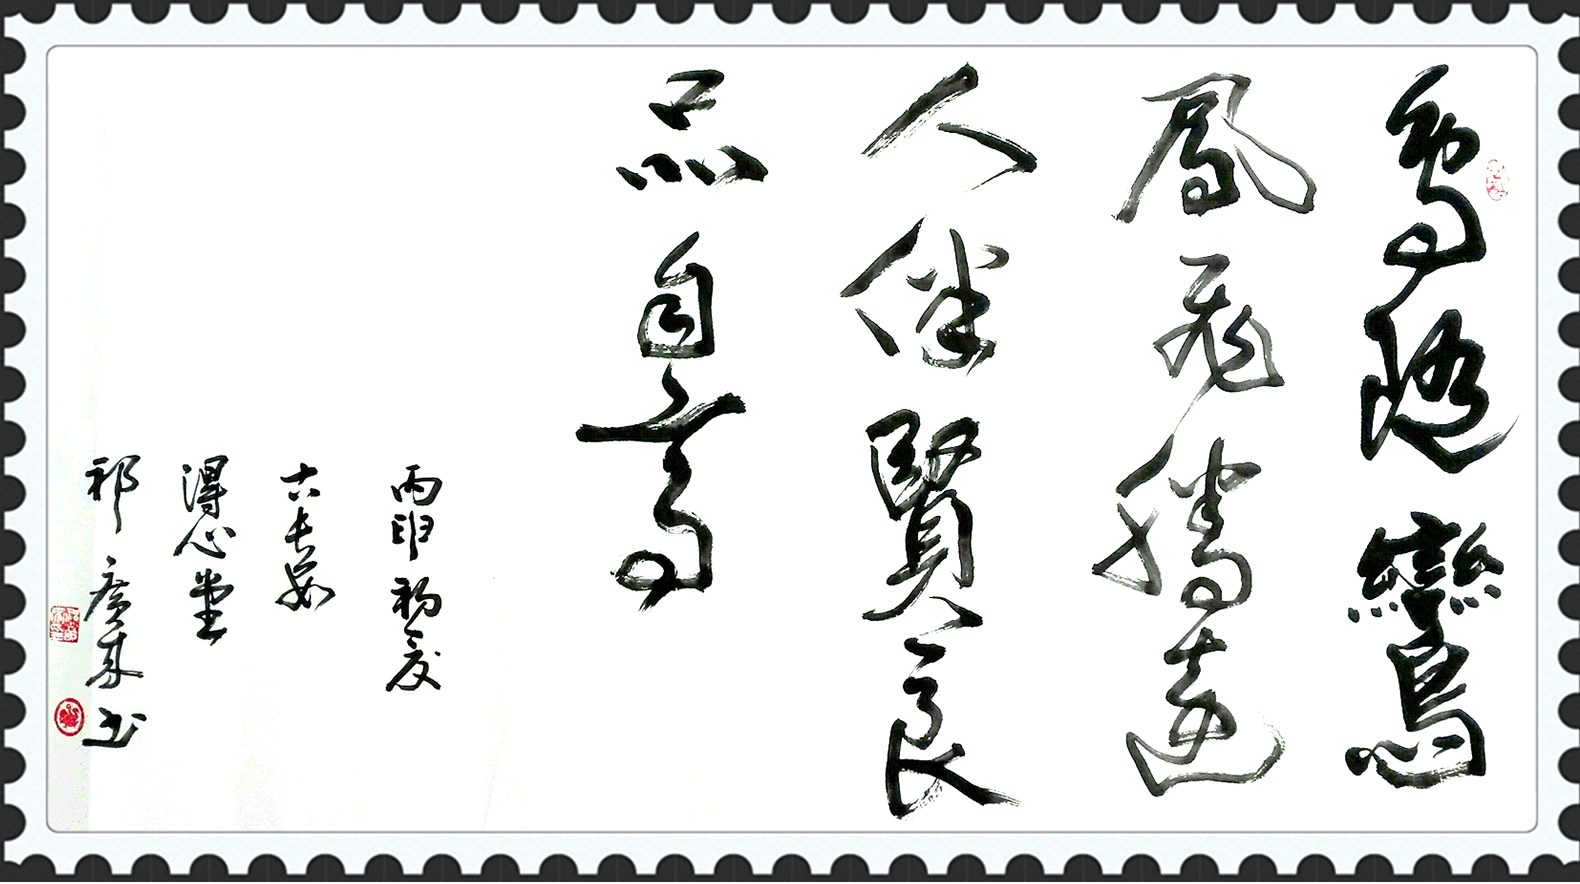 鸟随鸾
凤飞腾远
人伴贤良
品自高
丙申初夏
古长安
得心堂
祁广来书